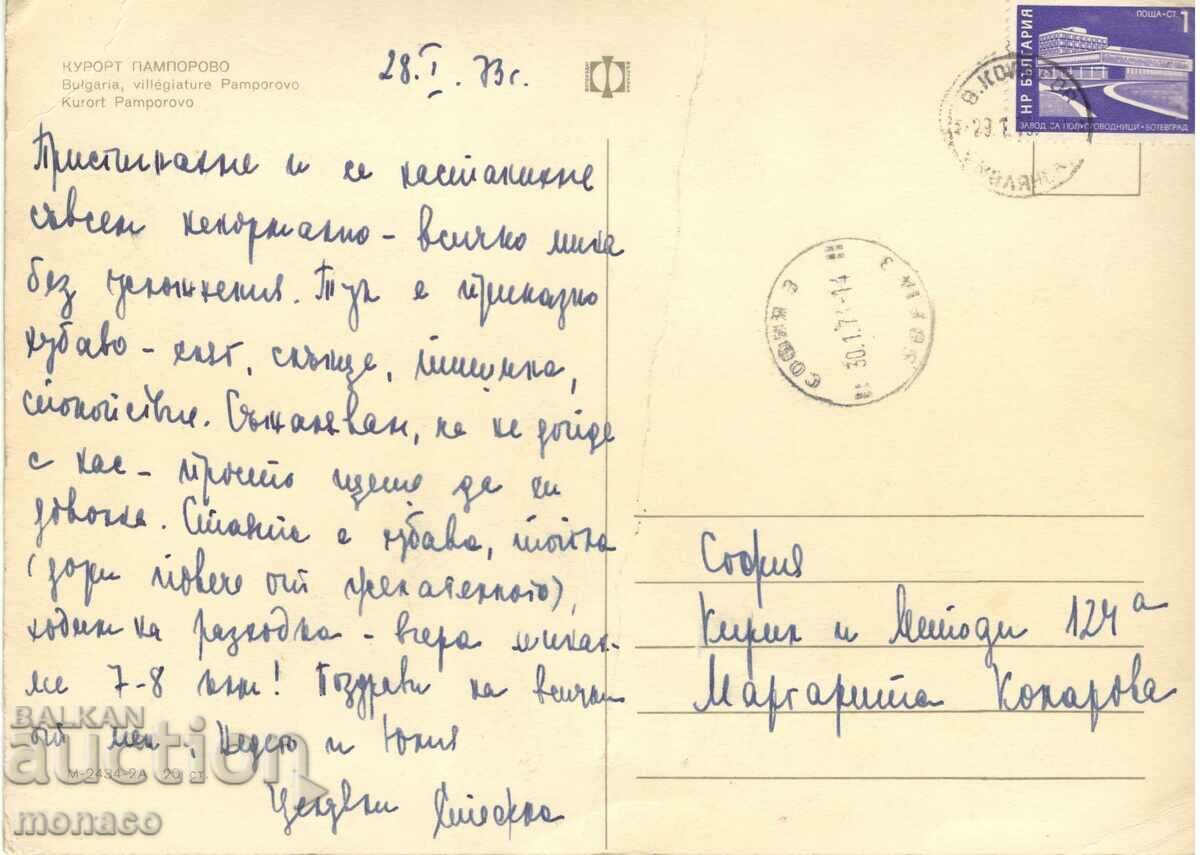 КУРОРТ ПАМПОРОВО
Bulgaria, villégiature Pamporovo
Kurort Pamporovo
28.I.73г.
Пристигнахме и се настанихме
съвсем ненормално - всичко мина
без усложнения. Тук е приказно
хубаво - сняг, слънце, тишина,
спокойствие. Съжалявам, че не дойде
с нас - просто щеше да си
доволна. Стаята е хубава, топла
(дори повече от
ходим на разходка - вчера минах-
ме 7-8 км! Поздрави на всички
от мен, Недето и Юлия
Целувки Стефка
М-2434-2А 20 ст.
НР БЪЛГАРИЯ
ПОЩА-СТ. 1
ЗАВОД ЗА ПОЛУПРОВОДНИЦИ-БОТЕВГРАД
29.1.73
СОФИЯ 3
30.1.73-14
SOFIA 3
София
Кирил и Методи 124а
Маргарита Комарова
BALKAN
auction
monaco